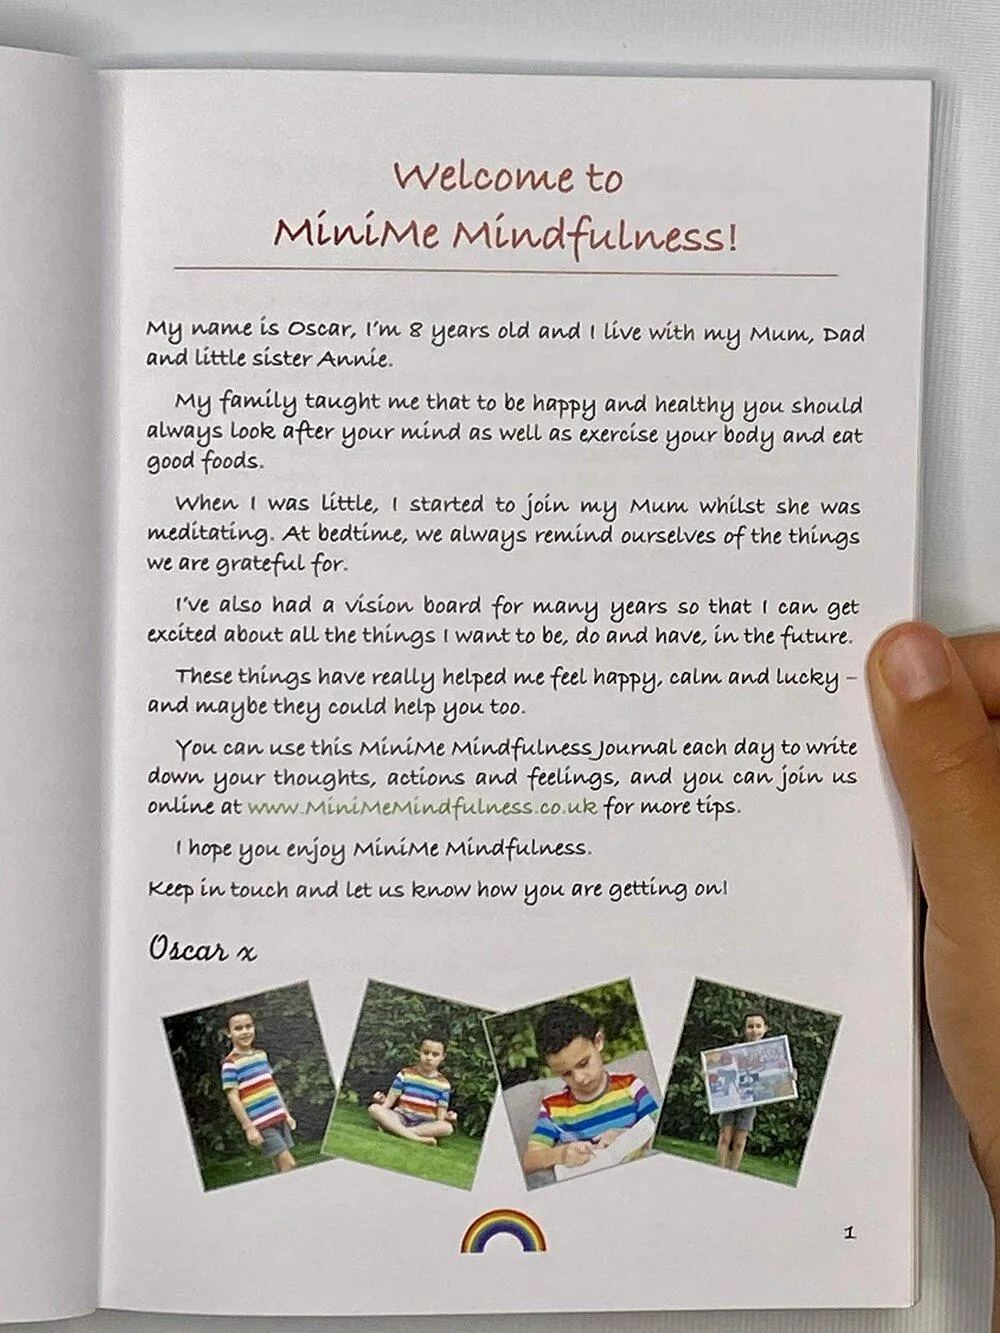 Welcome to
MiniMe Mindfulness!
My name is Oscar, I'm 8 years old and I live with my Mum, Dad
and little sister Annie.
My family taught me that to be happy and healthy you should
always look after your mind as well as exercise your body and eat
good foods.
When I was little, I started to join my Mum whilst she was
meditating. At bedtime, we always remind ourselves of the things
we are grateful for.
I've also had a vision board for many years so that I can get
excited about all the things I want to be, do and have, in the future.
These things have really helped me feel happy, calm and lucky –
and maybe they could help you too.
You can use this MiniMe Mindfulness Journal each day to write
down your thoughts, actions and feelings, and you can join us
online at www.MiniMeMindfulness.co.uk for more tips.
I hope you enjoy MiniMe Mindfulness.
Keep in touch and let us know how you are getting on!
Oscar x
1